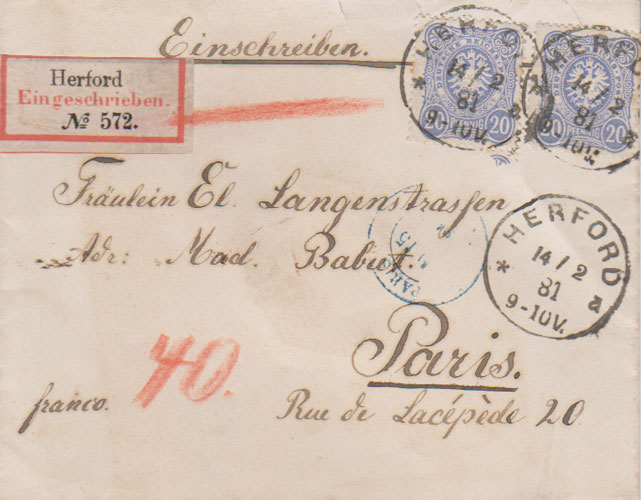 Einschreiben.
Herford
Eingeschrieben.
№ 572.
HERFORD
14 / 2
81
9-10V.
20
20
HERFORD
14 / 2
81
9-10V.
20
Fräulein El. Langenstrassen
Adr: Mad. Babut.
PARIS
15
HERFORD
14 / 2
81
9-10V.
a
Paris.
40.
franco.
Rue de Lacépède 20